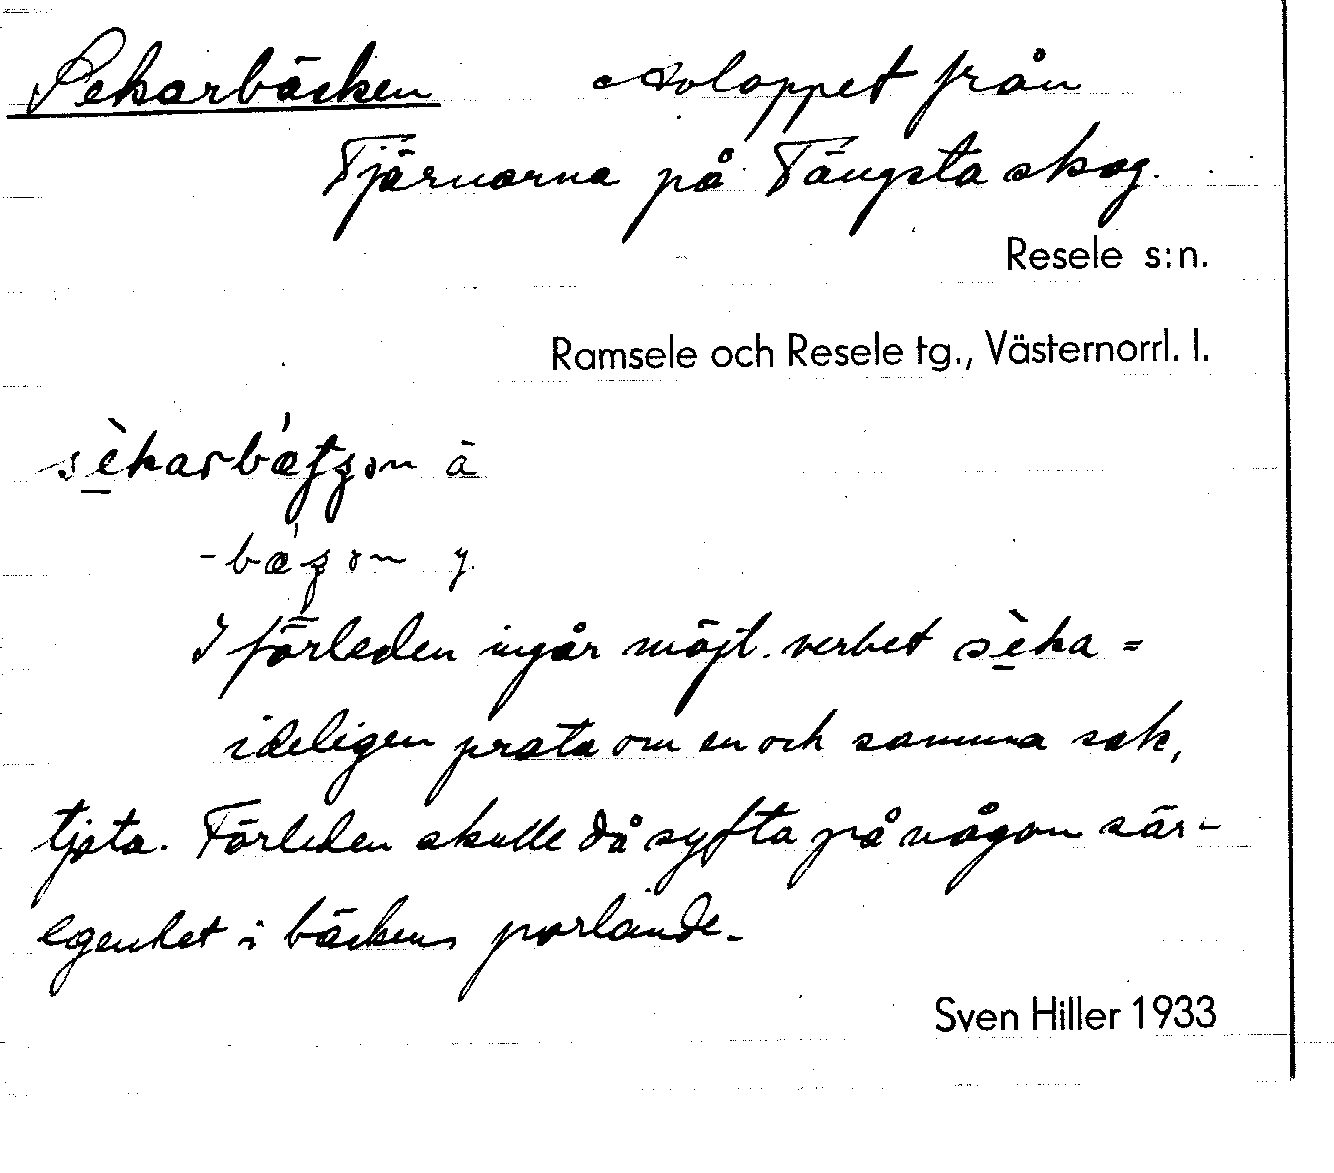 Sekarbäcken Avloppet från
Tjärnarna på Tängsta skog.
Resele s:n.
Ramsele och Resele tg., Västernorrl. l.
ä
y.
I förleden ingår möjl. verbet sè̱ka =
ideligen prata om en och samma sak,
tjata. Förleden skulle då syfta på någon sär-
egenhet i bäckens porlande.
Sven Hiller 1933